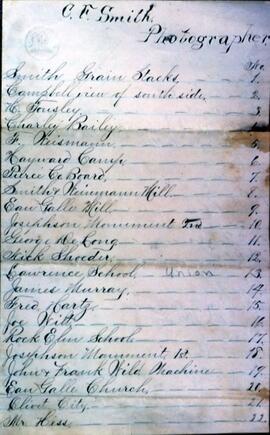 C. F. Smith.
Photographer
No.
Smith, Grain Stacks 1.
Campbell view of south side. 2.
H. Tousley 3.
Charley Bailey 4.
F. Reismann 5.
Hayward Camp 6
Pierce Co Board 7.
Smith & Weinmann Mill. 8.
Eau Galle Mill. 9.
Josephson Monument 10.
George De Long 11.
Nick Shoeder 12.
Lawrence School, Union 13.
James Murray. 14.
Fred Hartz 15.
Joe Witt 16.
Rock Elm School 17.
Josephson Monument 18.
John & Frank Wild Machine 19.
Eau Galle Church, 20.
Clint City. 21.
Mr Hess 22.